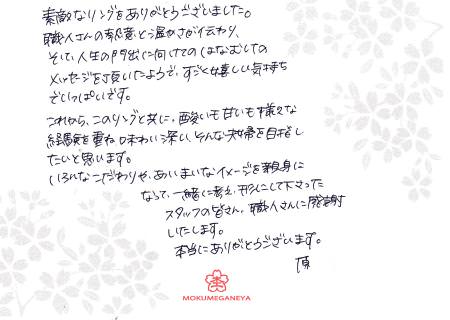 素敵なリングをありがとうございました。
職人さんの熱意と温かさが伝わり、
そして、人生の門出に向けてのはなむけの
メッセージを頂いたようで、すごく嬉しい気持ち
でいっぱいです。
これから、このリングと共に、酸いも甘いも様々な
経験を重ね 味わい深い、そんな夫婦を目指し
たいと思います。
いろんなこだわりや、あいまいなイメージを親身に
なって、一緒に考え、形にして下さった
スタッフの皆さん、職人さんに感謝
いたします。
本当にありがとうございます。
MOKUMEGANEYA